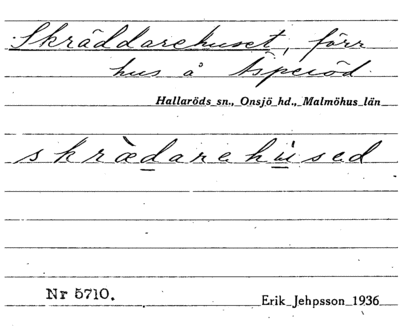 Skräddarehuset, förr
hus å Asperöd.
Hallaröds sn., Onsjö hd., Malmöhus län
skrædarehùsed
Nr 5710.
Erik Jehpsson 1936